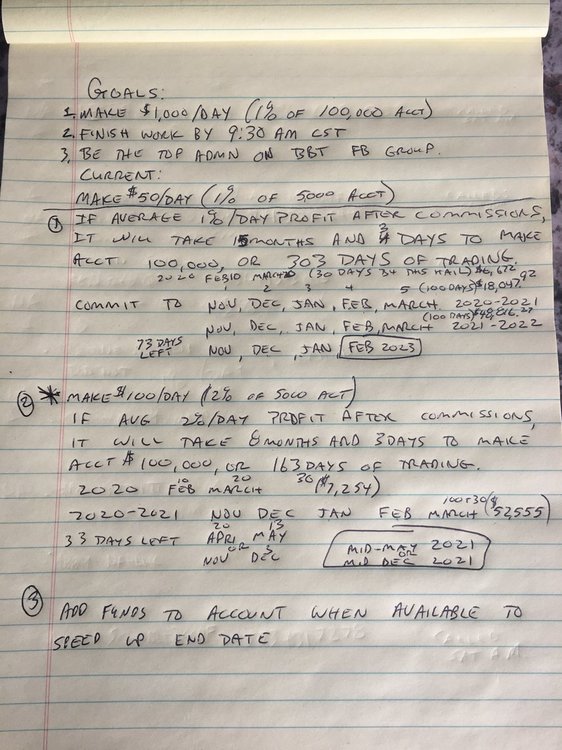 GOALS:
1. MAKE $1,000/DAY (1% OF 100,000 ACCT)
2. FINISH WORK BY 9:30 AM CST
3. BE THE TOP ADMN ON BBT FB GROUP.
CURRENT:
MAKE $50/DAY (1% OF 5,000 ACCT)
① IF AVERAGE 1%/DAY PROFIT AFTER COMMISSIONS,
IT WILL TAKE 15 MONTHS AND 3 DAYS TO MAKE
ACCT 100,000, OR 303 DAYS OF TRADING.
2020 FEB10 MARCH20 (30 DAYS THIS HALL) $6,672
1 2 3 4 5 (100 DAYS) $18,047.92
COMMIT TO NOV, DEC, JAN, FEB, MARCH 2020-2021
(100 DAYS) $48,816.27
NOV, DEC, JAN, FEB, MARCH 2021-2022
73 DAYS LEFT NOV, DEC, JAN, FEB 2023
② * MAKE $100/DAY (2% OF 5000 ACT)
IF AVG 2%/DAY PROFIT AFTER COMMISSIONS,
IT WILL TAKE 8 MONTHS AND 3 DAYS TO MAKE
ACCT $100,000, OR 163 DAYS OF TRADING.
10 20 30
2020 FEB MARCH ($7,254)
100+30
2020-2021 NOV DEC JAN FEB MARCH ($52,555)
20 13
33 DAYS LEFT APRI MAY MID-MAY 2021
OR 3 OR
NOV DEC MID DEC 2021
③ ADD FUNDS TO ACCOUNT WHEN AVAILABLE TO
SPEED UP END DATE